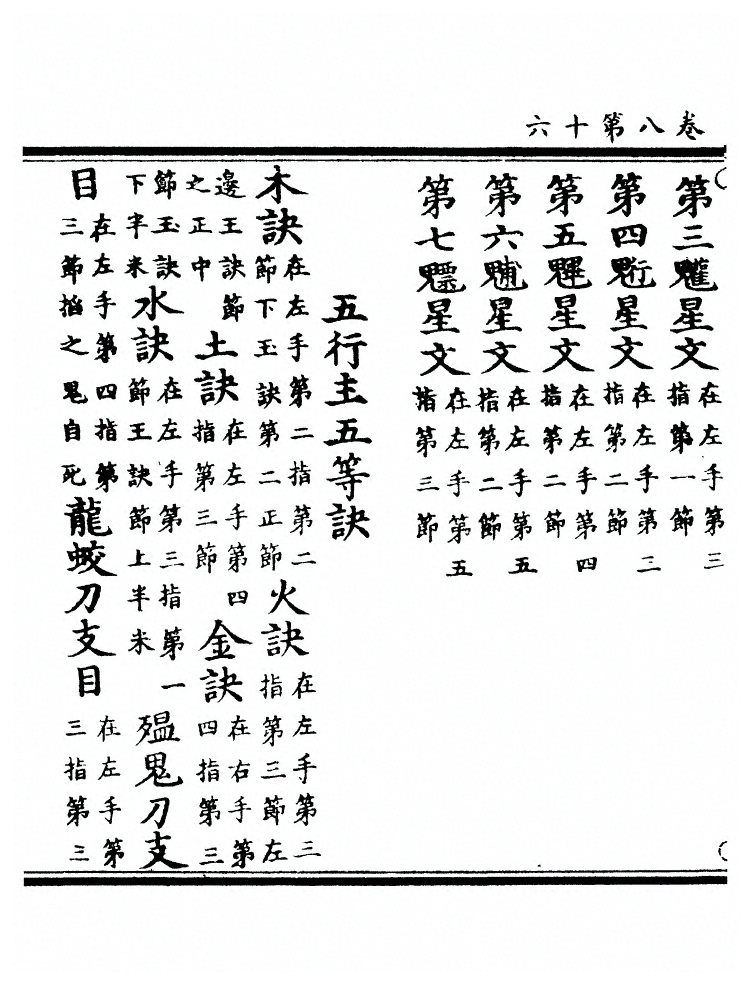 卷八第十六
第三星文在左手第三指第一節
第四星文在左手第三指第二節
第五星文在左手第四指第二節
第六魓星文在左手第五指第二節
第七魒星文在左手第五指第三節
五行主五等訣
木訣在左手第二指第二節下玉訣第二正節火訣在左手第三指第三節左
邊王訣節之正中土訣在左手第四指第三節金訣在右手第四指第三
節玉訣下半米水訣在左手第三指第一節王訣節上半米殟鬼刀支
目在左手第四指第三節掐之鬼自死龍蛟刀支目在左手第三指第三